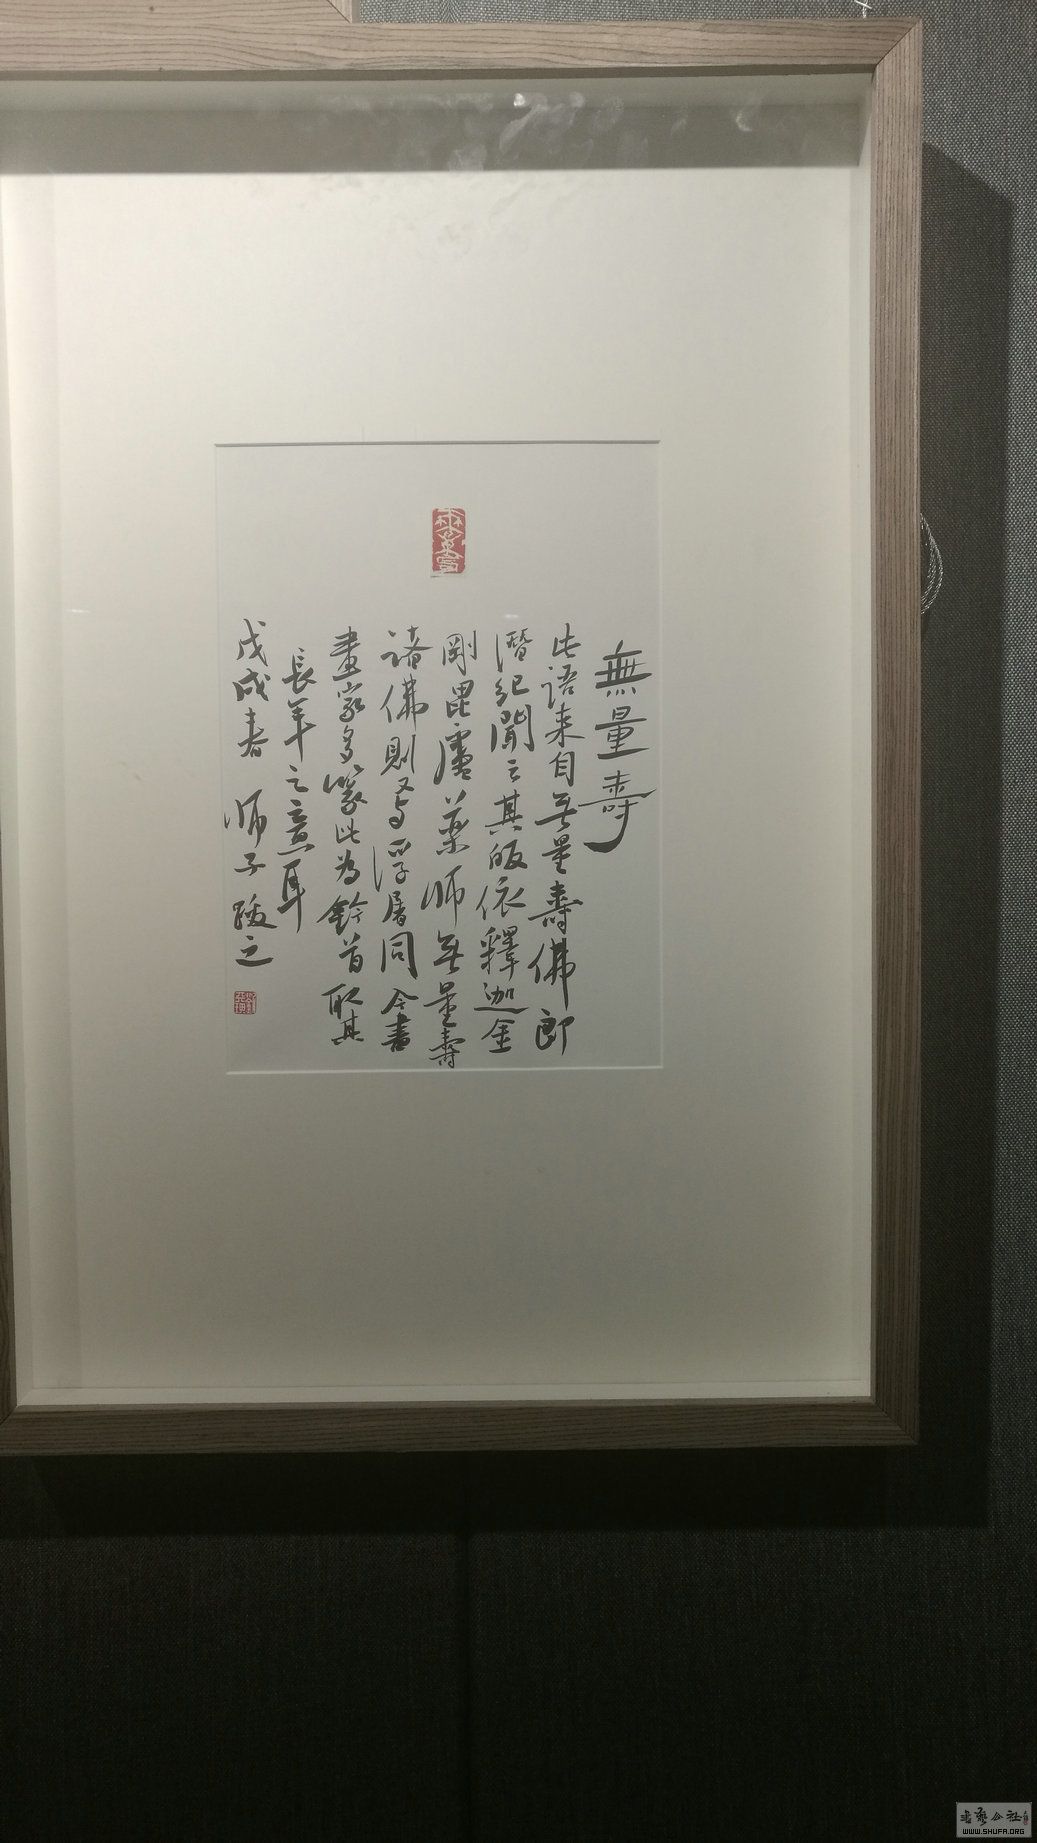 無量壽
無量壽
此語来自无量壽佛郎
潛紀聞云其皈依釋迦金
剛毘廬藥師无量壽
諸佛則又与浮屠同今書
畫家多篆此為鈐首取其
長年之意耳
戊戌春 师子之
WWW.SHUFA.ORG